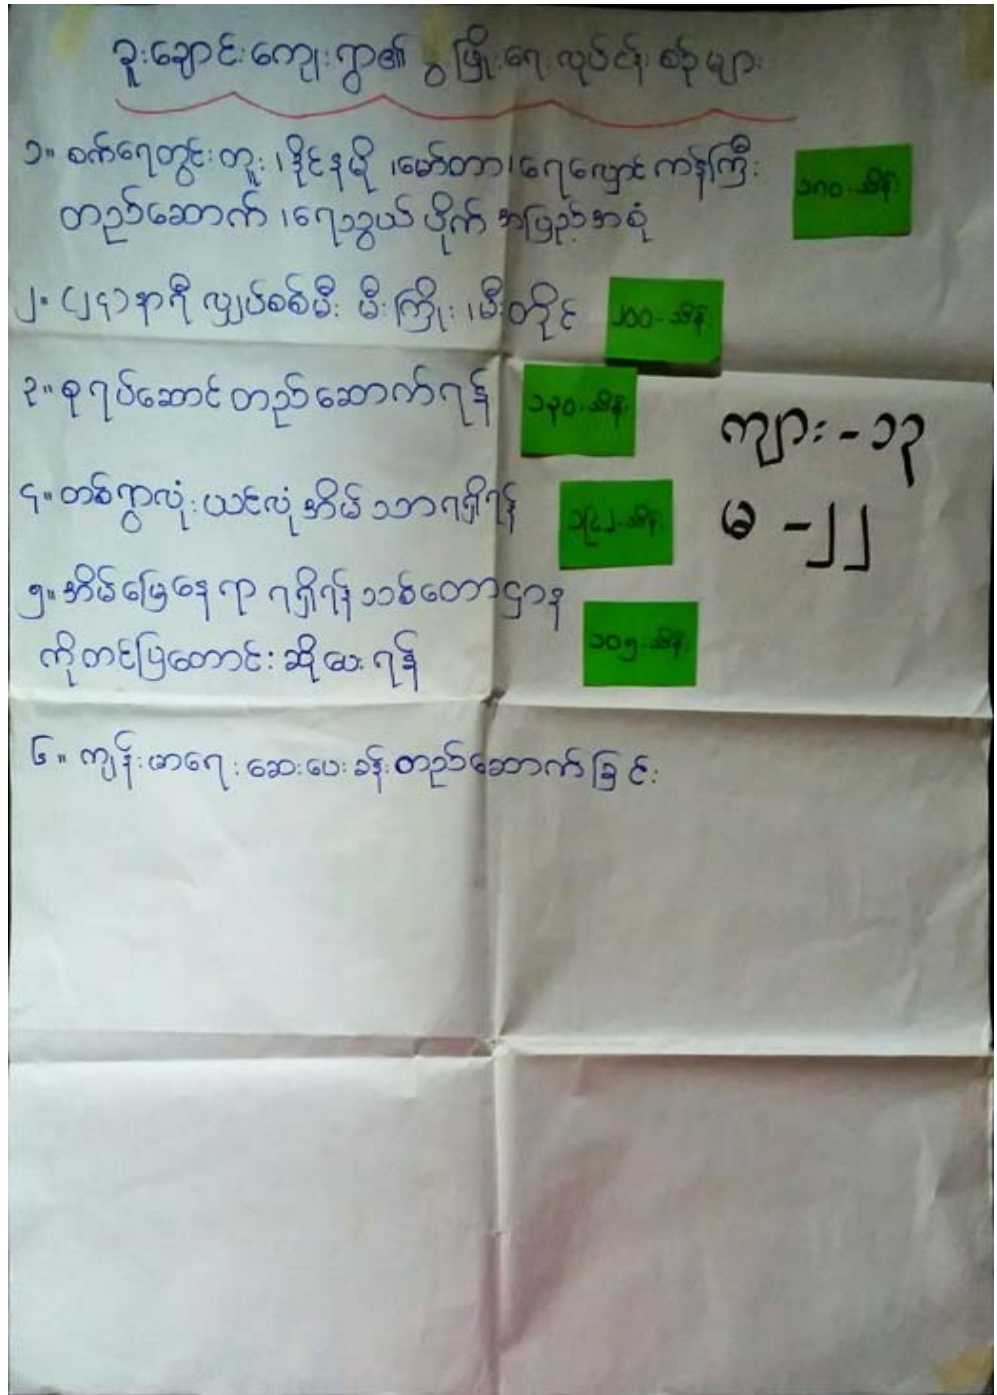 ခူးချောင်းကျေးရွာ၏ ဖွံ့ဖြိုးရေးလုပ်ငန်းစဉ်များ
၁။ စက်ရေတွင်းတူး၊ ဒိုင်နမို၊ မော်တာ၊ ရေလှောင်ကန်ကြီး
တည်ဆောက်၊ ရေသွယ်ပိုက် အပြည့်အစုံ
၁၈၀-သိန်း
၂။ (၂၄)နာရီ လျှပ်စစ်မီး မီးကြိုး၊ မီးတိုင်
၂၀၀-သိန်း
၃။ စုရပ်ဆောင်တည်ဆောက်ရန်
၁၃၀-သိန်း
ကျား - ၁၃
၄။ တစ်ရွာလုံးယင်လုံအိမ်သာရရှိရန်
မ - ၂၂
၅။ အိမ်မြေနေရာ ရရှိရန် သစ်တောဌာန
ကိုတင်ပြတောင်းဆိုပေးရန်
၁၀၅-သိန်း
၆။ ကျန်းမာရေးဆေးပေးခန်းတည်ဆောက်ခြင်း